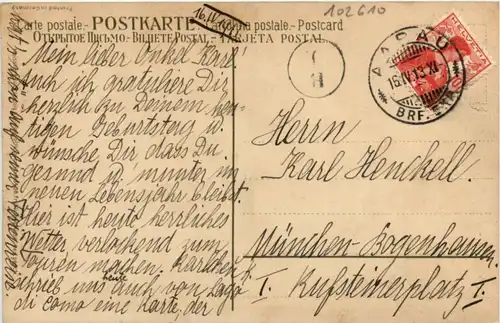 Printed in Germany
Carte postale.- POSTKARTE -Cartolina postale.-Postcard
ОТКРЫТОЕ ПИСЬМО.- BILHETE POSTAL.- TARJETA POSTAL.
16.IV.13
102610
Mein lieber Onkel Karl!
Auch ich gratuliere Dir
herzlich zu Deinem heu-
tigen Geburtstag u.
wünsche, Dir dass Du
gesund u. munter im
neuen Lebensjahr bleibst.
Hier ist heute herrliches
Wetter verlockend zum
Touren machen. Karlchen
schrieb uns heute auch von Lago
di Como eine Karte, der
AARAU
16.IV.13.XI-
BRF.
HELVETIA
Herrn
Karl Henckell.
München-Bogenhausen
I. Kufsteinerplatz I.